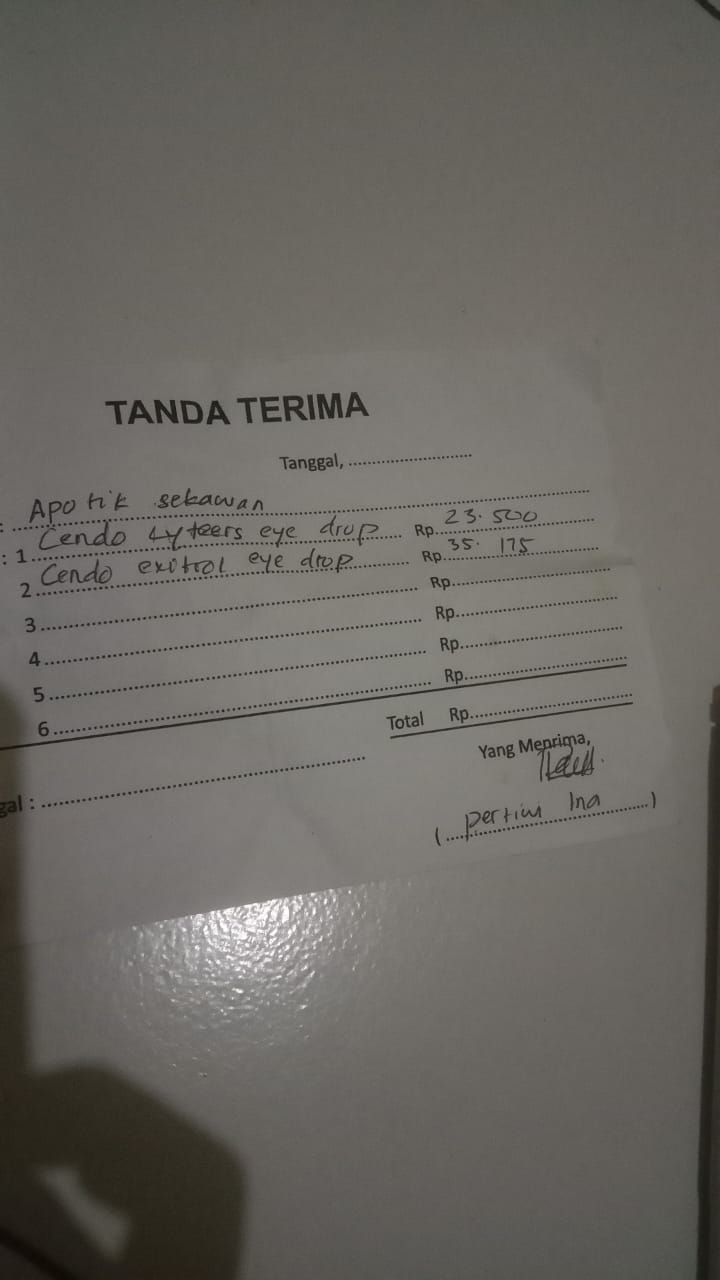 TANDA TERIMA
Tanggal, ........................
: Apotik sekawan
: 1 Cendo lyteers eye drop Rp. 23.500
2 Cendo exitrol eye drop Rp. 35.175
3 ........................ Rp.........................
4 ........................ Rp.........................
5 ........................ Rp.........................
6 ........................ Rp.........................
Total Rp.........................
gal : ........................
Yang Menrima,
(....pertiwi Ina....)